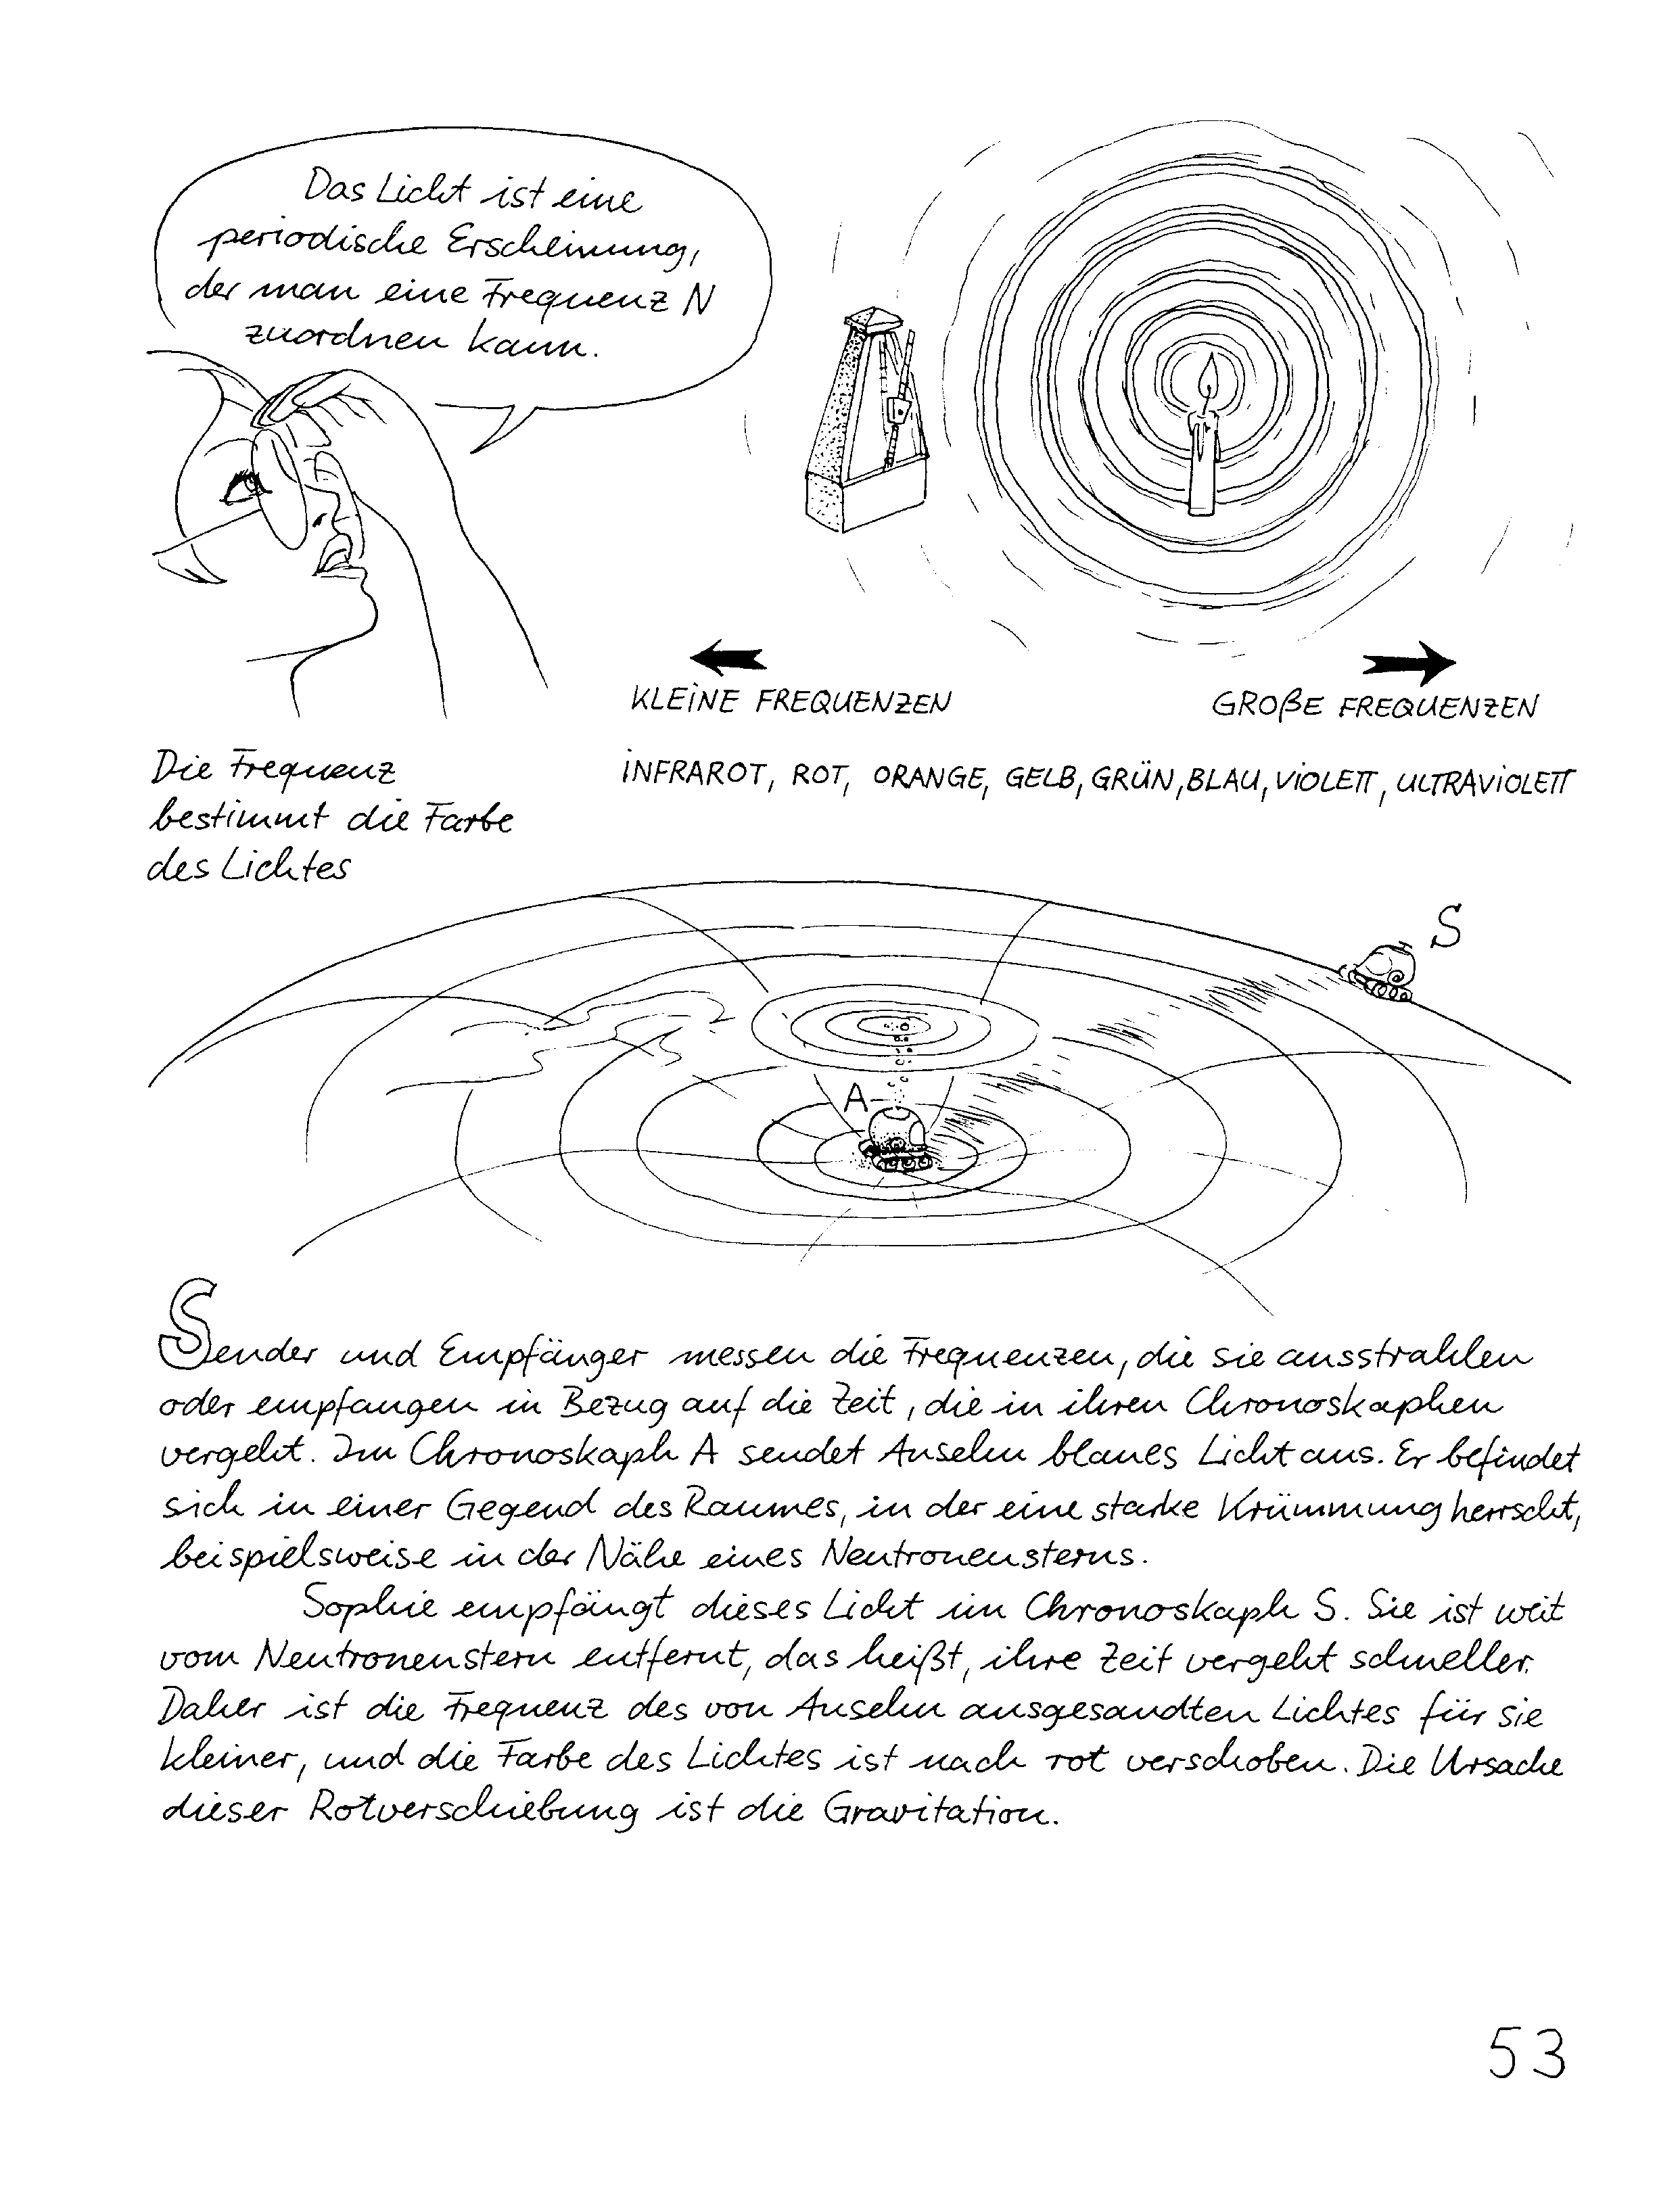 Das Licht ist eine
periodische Erscheinung,
der man eine Frequenz N
zuordnen kann.
KLEINE FREQUENZEN
GROßE FREQUENZEN
INFRAROT, ROT, ORANGE, GELB, GRÜN, BLAU, VIOLETT, ULTRAVIOLETT
Die Frequenz
bestimmt die Farbe
des Lichtes
S
A
Sender und Empfänger messen die Frequenzen, die sie ausstrahlen
oder empfangen in Bezug auf die Zeit, die in ihren Chronoskaphen
vergeht. Im Chronoskaph A sendet Anselm blaues Licht aus. Er befindet
sich in einer Gegend des Raumes, in der eine starke Krümmung herrscht,
beispielsweise in der Nähe eines Neutronensterns.
Sophie empfängt dieses Licht im Chronoskaph S. Sie ist weit
vom Neutronenstern entfernt, das heißt, ihre Zeit vergeht schneller.
Daher ist die Frequenz des von Anselm ausgesandten Lichtes für sie
kleiner, und die Farbe des Lichtes ist nach rot verschoben. Die Ursache
dieser Rotverschiebung ist die Gravitation.
53